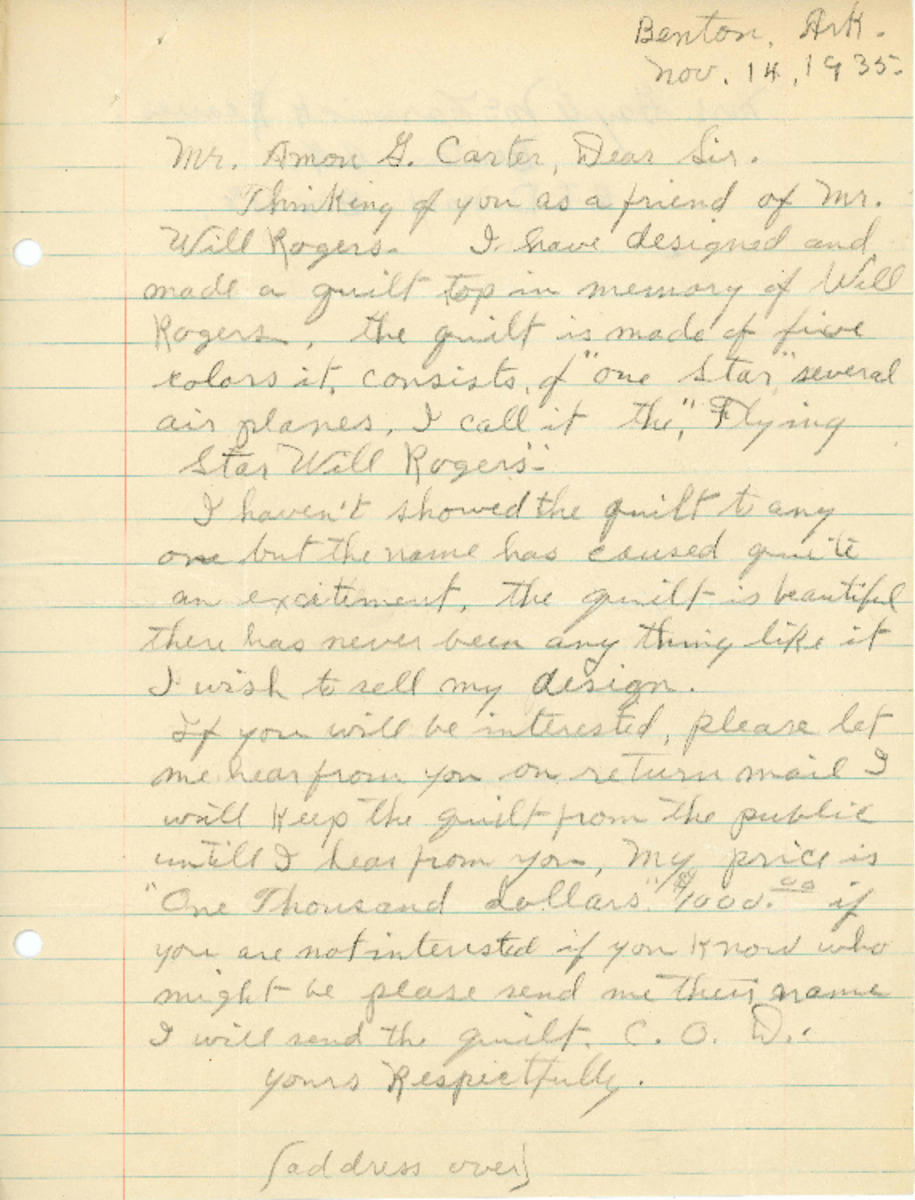 Benton, Ark.
Nov. 14, 1935.
Mr. Amon G. Carter, Dear Sir.
Thinking of you as a friend of Mr.
Will Rogers. I have designed and
made a quilt top in memory of Will
Rogers, the quilt is made of five
colors it, consists, of "one Star" several
air planes, I call it the, "Flying
Star Will Rogers".
I haven't showed the quilt to any
one but the name has caused quite
an excitement, the quilt is beautiful
there has never been any thing like it
I wish to sell my design.
If you will be interested, please let
me hear from you on return mail I
will keep the quilt from the public
untill I hear from you, My price is
"One Thousand dollars" $1000.00 if
you are not interested if you know who
might be please send me their name
I will send the quilt. C. O. D.
yours Respectfully.
(address over)